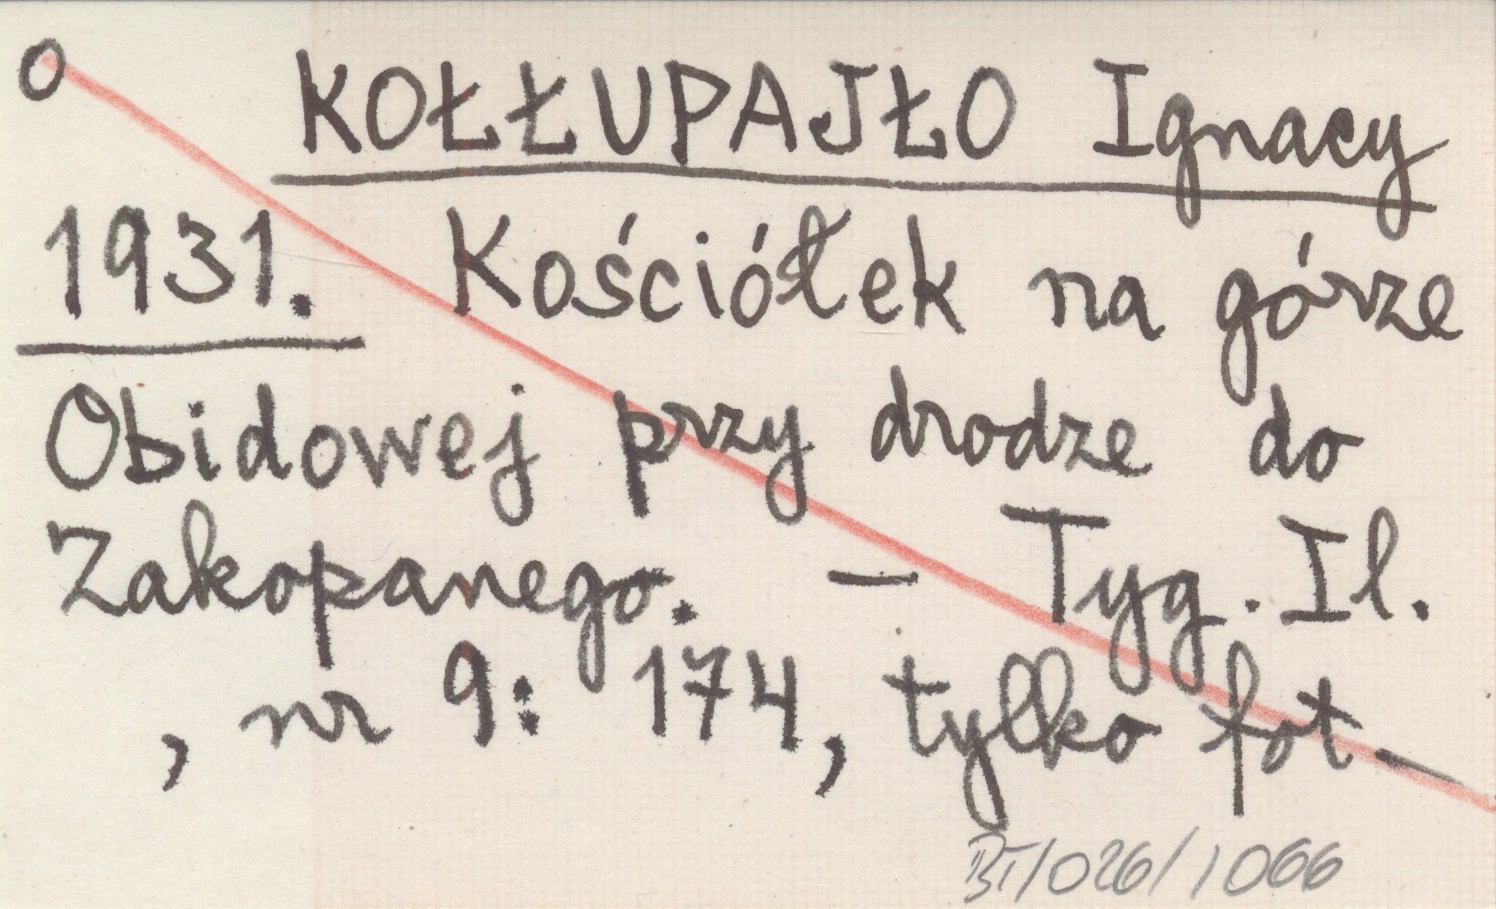 o KOŁŁUPAJŁO Ignacy
1931. Kościółek na górze
Obidowej przy drodze do
Zakopanego. – Tyg. Il.
, nr 9: 174, tylko fot –
BT/026/1066